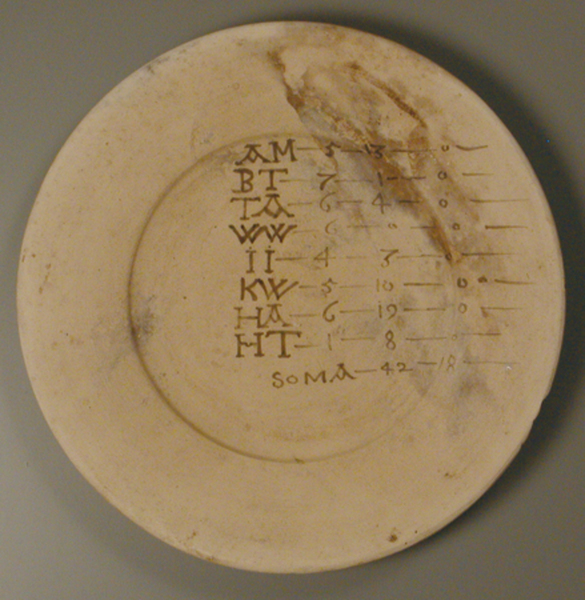 AM—5—13—0—
BT—7—1—0—
TA—6—4—0—
WW—6—0—0—
II—4—3—0—
KW—5—10—0—
HA—6—19—0—
HT—1—8—0—
SOMA—42—18—